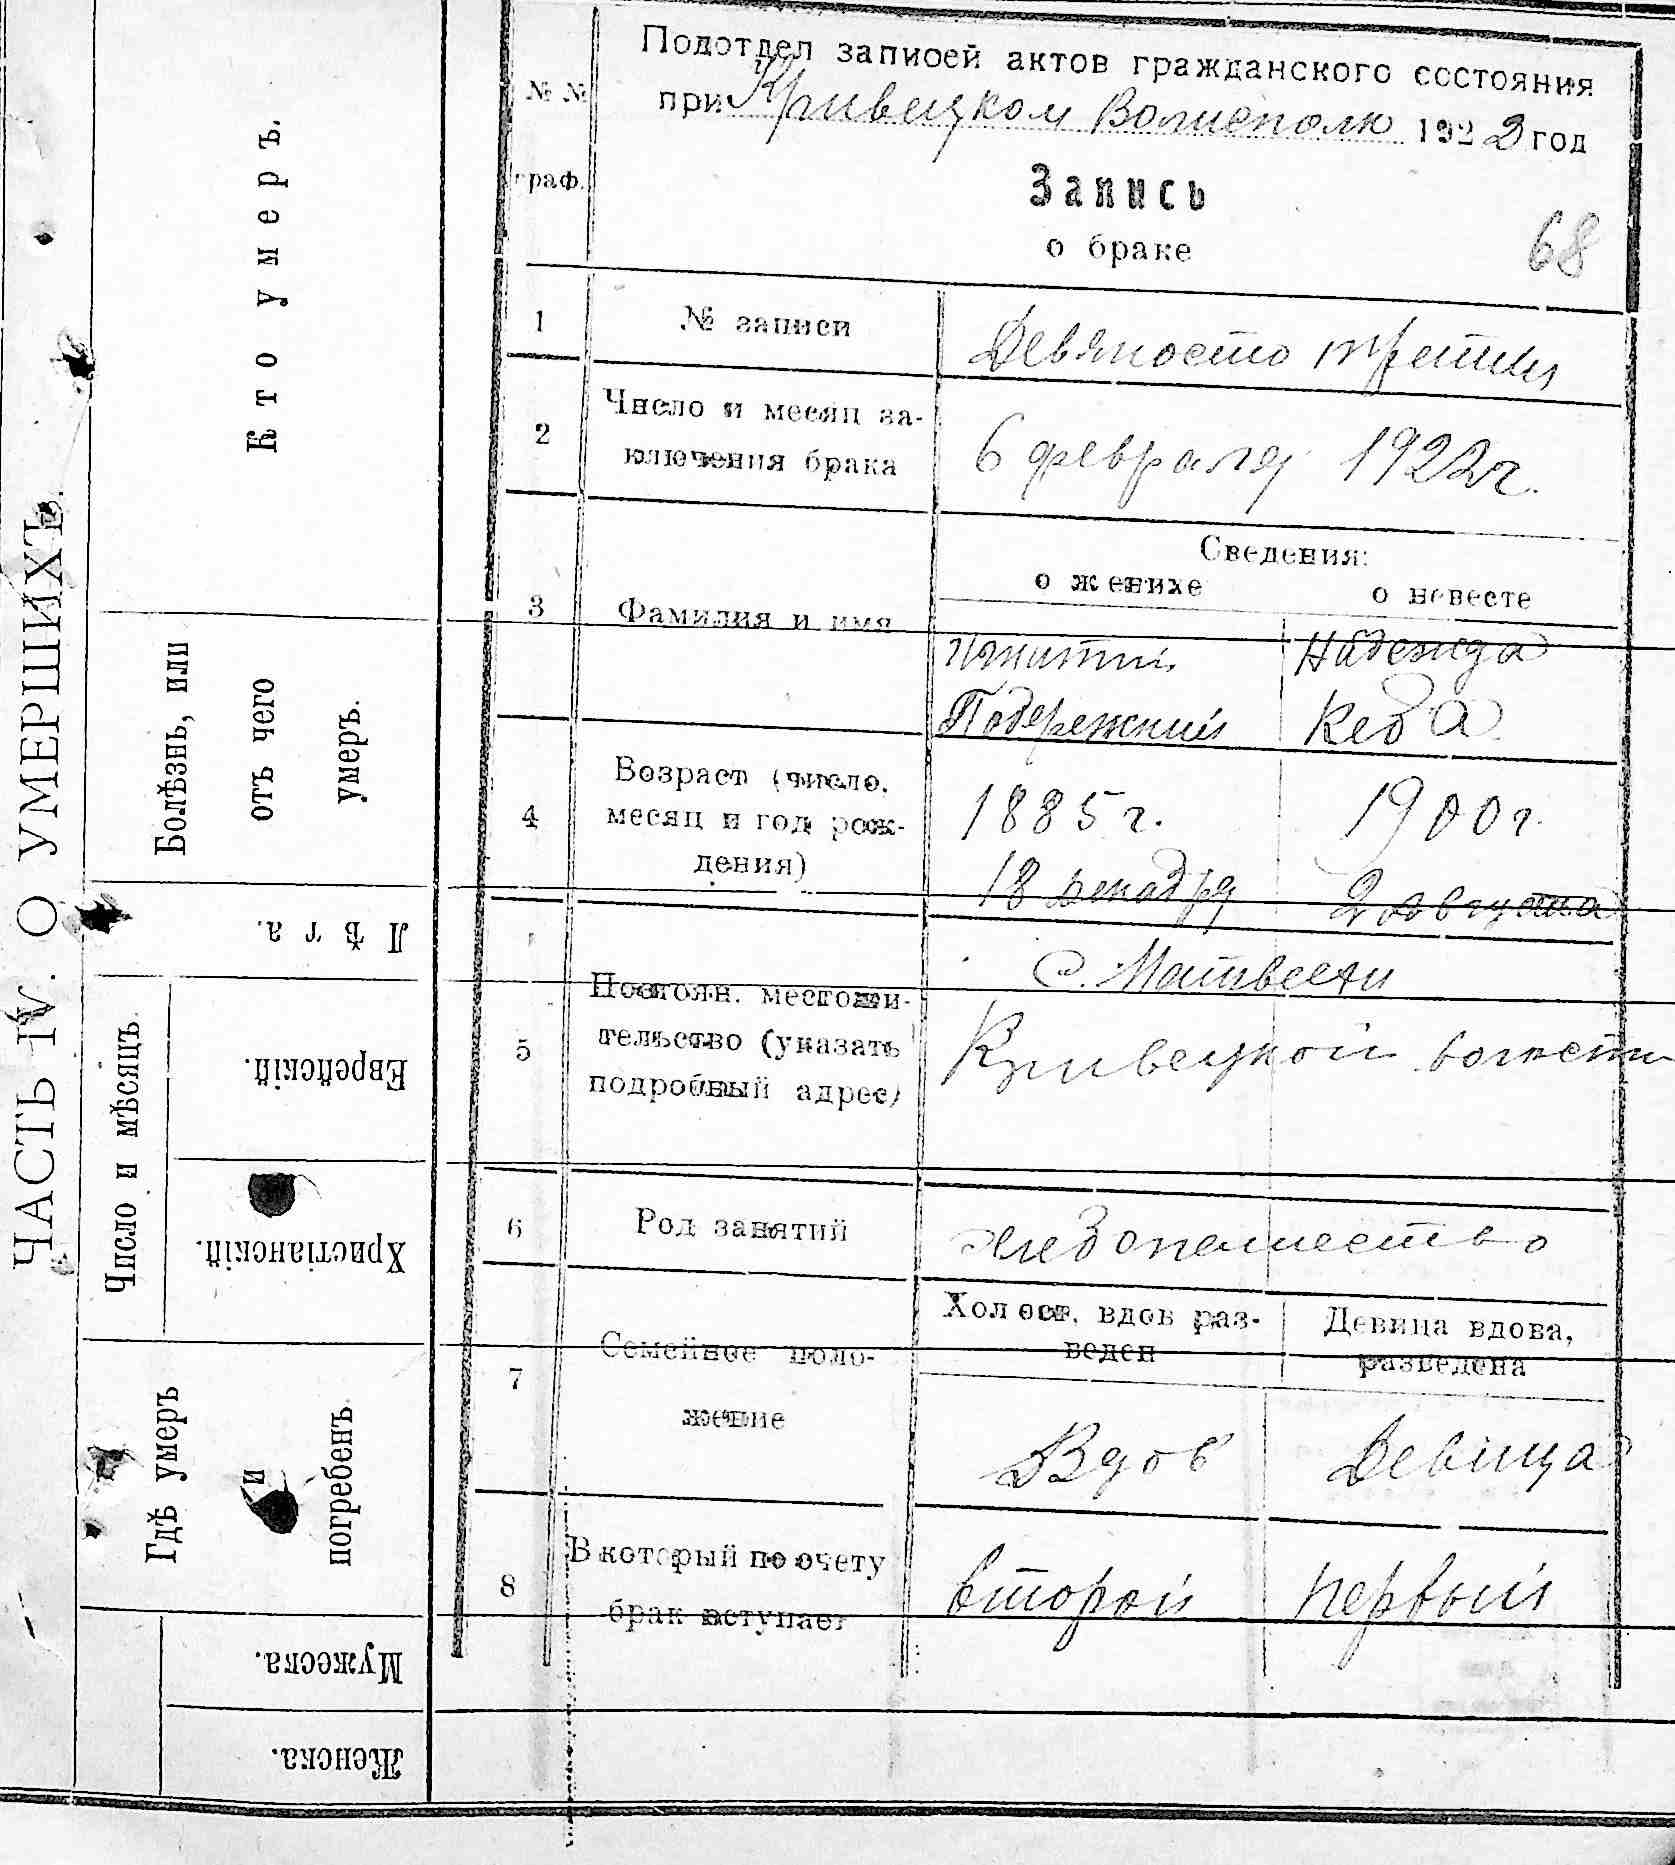 ЧАСТЬ IV. О УМЕРШИХЪ.
Кто умеръ.
Болѣзнь, или
отъ чего
умеръ.
Лѣта.
Число и мѣсяцъ
Еврейскій.
Христіанскій.
Гдѣ умеръ
и
погребенъ
Мужеска.
Женска.
№ №
граф.
Подотдел записей актов гражданского состояния
при Кривецком Волисполк 1922 год
Запись
о браке
68
1 № записи Девяносто третий
2 Число и месяц за-
ключения брака 6 февраля 1922 г.
Сведения:
о женихе о невесте
3 Фамилия и имя
Надежда
Подережний Кеба
4 Возраст (число,
месяц и год рож-
дения)
1885 г. 1900 г.
18 декабря 2 августа
5 Постоян. местожи-
тельство (указать
подробный адрес)
С.
Кривецкой волости
6 Род занятий хлебопашество
7 Семейное поло-
жение
Холост, вдов раз-
веден
Девица вдова,
разведена
Вдов Девица
8 В который по счету
брак вступает
второй первый